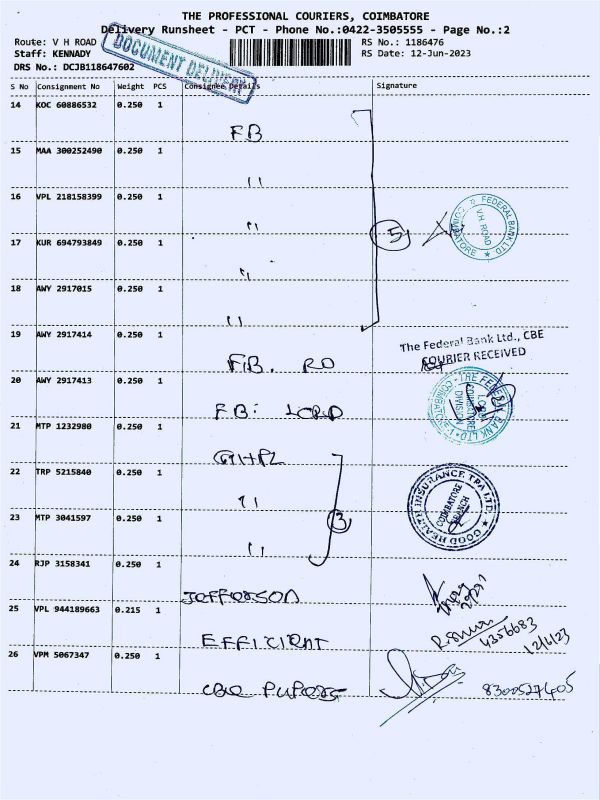 THE PROFESSIONAL COURIERS, COIMBATORE
Delivery Runsheet - PCT - Phone No.:0422-3505555 - Page No.:2
Route: V H ROAD
RS No.: 1186476
Staff: KENNADY
RS Date: 12-Jun-2023
DRS No.: DCJB118647602
DOCUMENT DELIVERY
S No Consignment No Weight PCS Consignee Details Signature
14 KOC 60886532 0.250 1
FB
15 MAA 300252490 0.250 1
"
16 VPL 218158399 0.250 1
"
FEDERAL BANK LTD
V.H ROAD
COIMBATORE
5
17 KUR 694793849 0.250 1
"
18 AWY 2917015 0.250 1
"
19 AWY 2917414 0.250 1
The Federal Bank Ltd., CBE
COURIER RECEIVED
F.B. RO
20 AWY 2917413 0.250 1
THE FEDERAL BANK LTD.
COIMBATORE
DIVISION
FB: LCRD
21 MTP 1232980 0.250 1
GHPL
22 TRP 5215840 0.250 1
"
GOOD HEALTH INSURANCE TPA LTD.
COIMBATORE
BRANCH
3
23 MTP 3041597 0.250 1
"
24 RJP 3158341 0.250 1
JEFFERSON
25 VPL 944189663 0.215 1
EFFICIENT
4356683
12/6/23
26 VPM 5067347 0.250 1
CBE PUPERS
8300527405